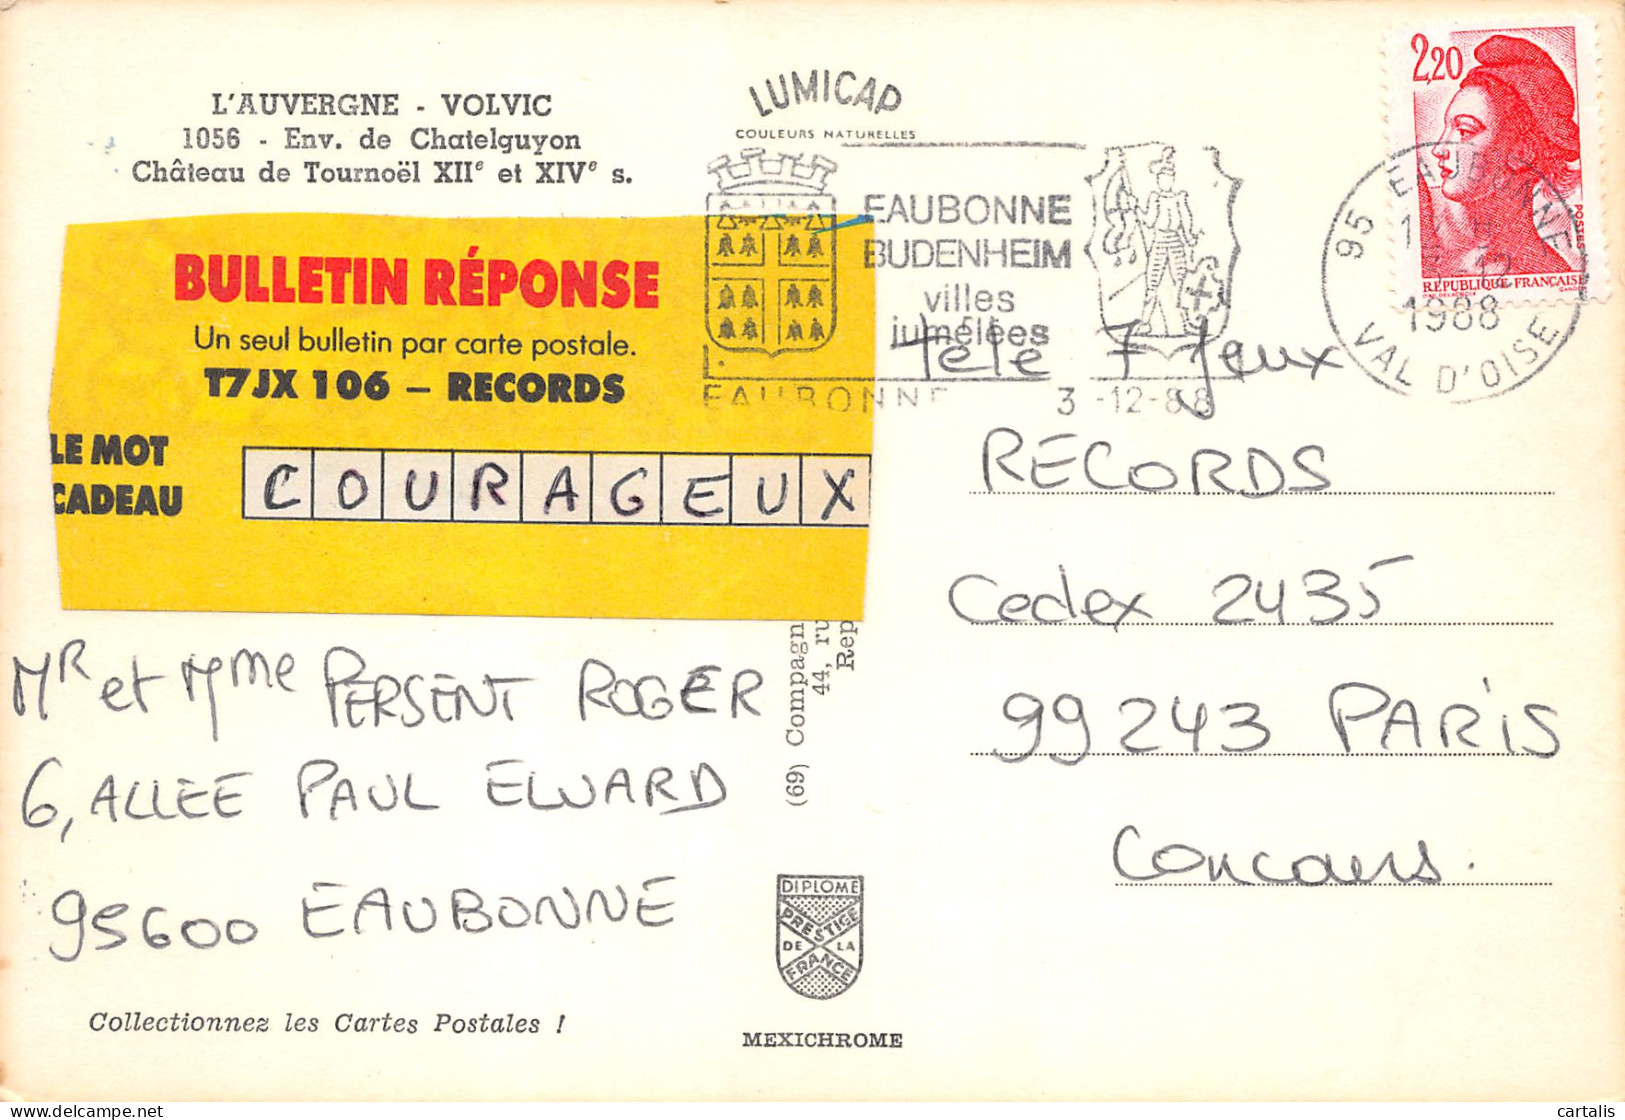 L'AUVERGNE - VOLVIC
1056 - Env. de Chatelguyon
Château de Tournoël XIIe et XIVe s.
BULLETIN RÉPONSE
Un seul bulletin par carte postale.
T7JX 106 – RECORDS
LE MOT
CADEAU
COURAGEUX
Mr et Mme PERSENT ROGER
6, ALLEE PAUL ELUARD
95600 EAUBONNE
Collectionnez les Cartes Postales !
LUMICAP
COULEURS NATURELLES
EAUBONNE
BUDENHEIM
villes
jumelées
EAUBONNE 3-12-88
2,20
POSTES
RÉPUBLIQUE FRANÇAISE
95 EAUBONNE
-12
1988
VAL D'OISE
Télé 7 Jeux
RECORDS
Cedex 2435
99243 PARIS
Concours.
(69) Compagn
44, ru
Rep
DIPLOME
PRESTIGE
DE LA
FRANCE
MEXICHROME
cartalis
delcampe.net